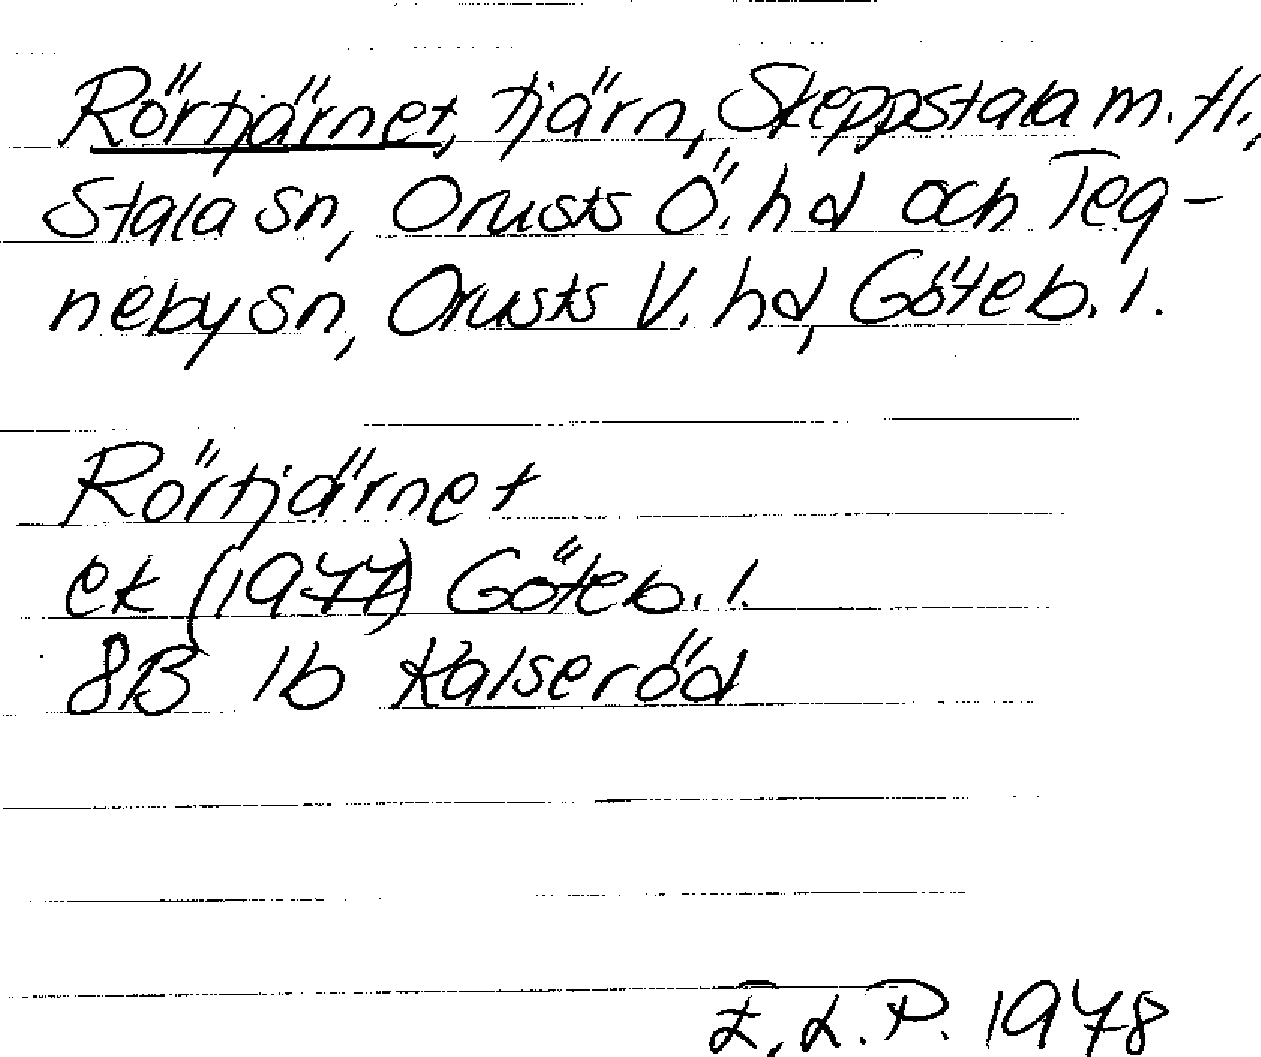 Rörtjärnet, tjärn, Skeppstala m. fl.,
Stala sn, Orusts Ö. hd och Teg-
neby sn, Orusts V. hd, Göteb. l.
Rörtjärnet
ek (1977) Göteb. l.
8B 1b Kalseröd
E. L. P. 1978